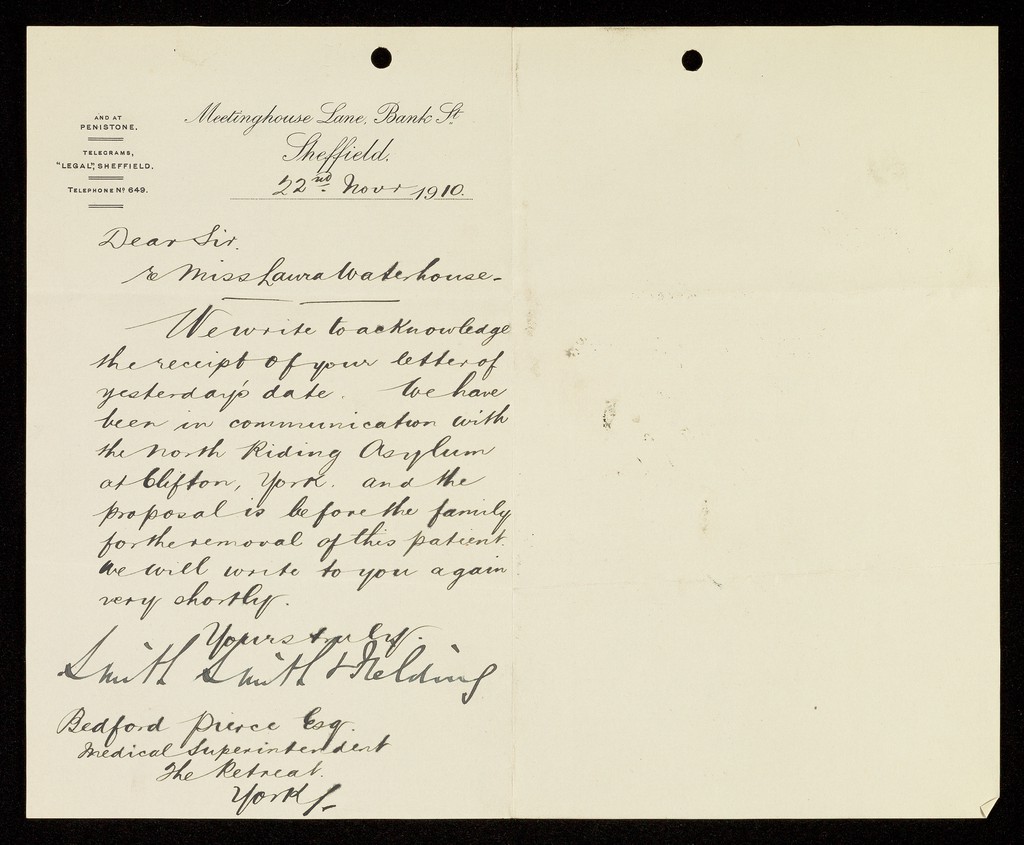 AND AT
PENISTONE.
TELEGRAMS,
"LEGAL", SHEFFIELD.
TELEPHONE Nº 649.
Meetinghouse Lane, Bank St.
Sheffield.
22nd. Novr 1910.
Dear Sir.
re Miss Laura Waterhouse -
We write to acknowledge
the receipt of your letter of
yesterday's date. We have
been in communication with
the North Riding Asylum
at Clifton, York. and the
proposal is before the family
for the removal of this patient.
We will write to you again
very shortly.
Yours truly.
Smith Smith & Fielding
Bedford Pierce Esq.
Medical Superintendent
The Retreat.
York